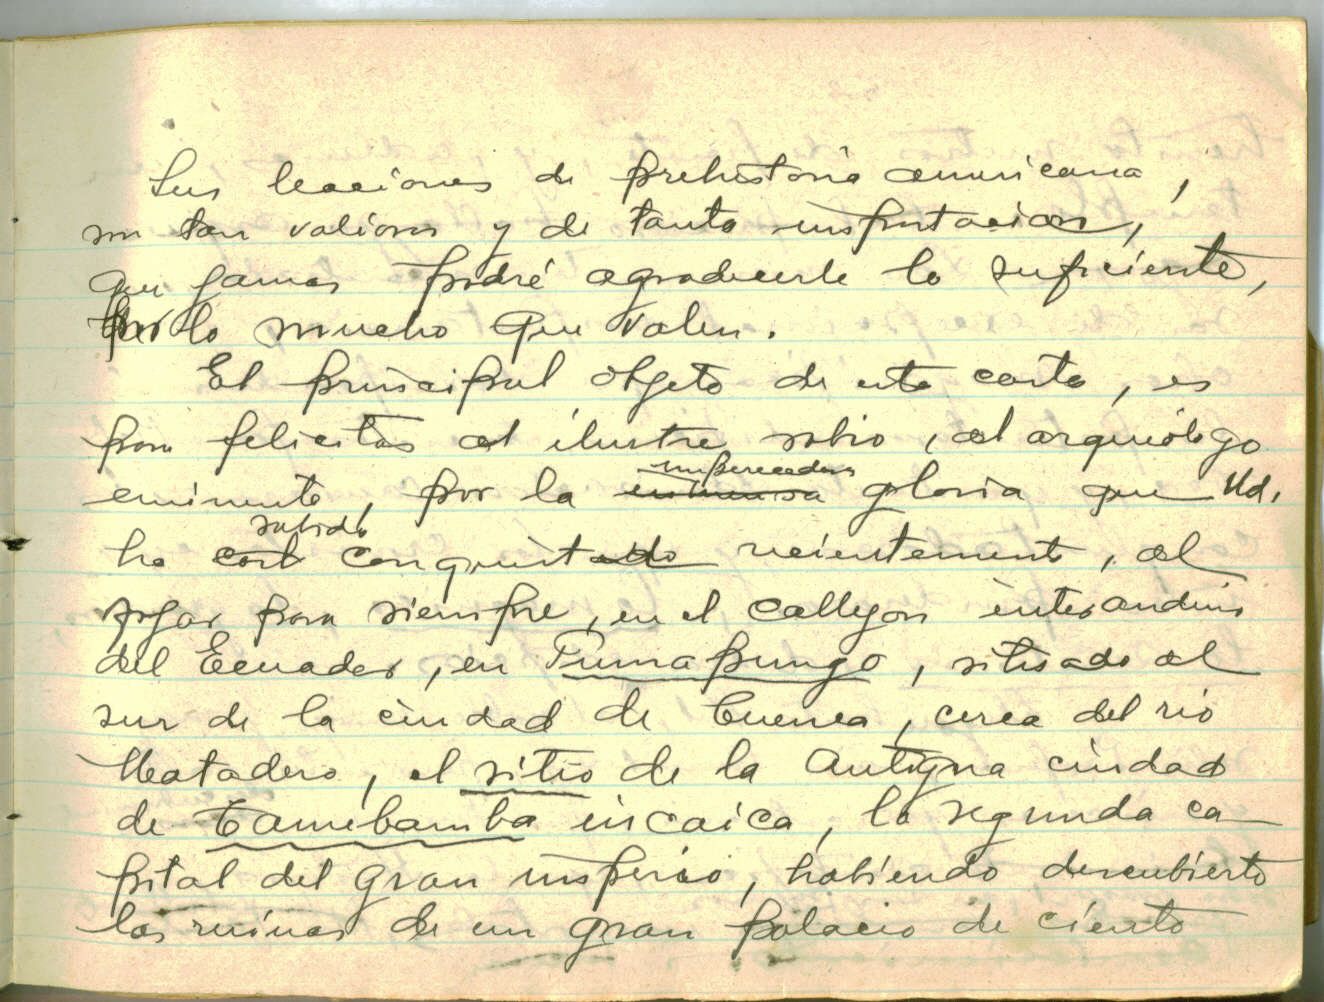 Sus lecciones de prehistoria americana,
son tan valiosas y de tanta importacion,
que jamas podré agradecerle lo suficiente,
por lo mucho que valen.
El principal objeto de esta carta, es
para felicitar al ilustre sabio, al arqueólogo
eminente, por la inmensa imperecedera gloria que Ud.
ha sabido conquistado recientemente, al
para siempre, en el callejon interandino
del Ecuador, en Pumapungo, situado al
sur de la ciudad de Cuenca, cerca del rio
Matadero, el sitio de la Antigua ciudad
de Tomebamba incaica, la segunda ca
pital del gran imperio, habiendo descubierto
las ruinas de un gran palacio de ciento